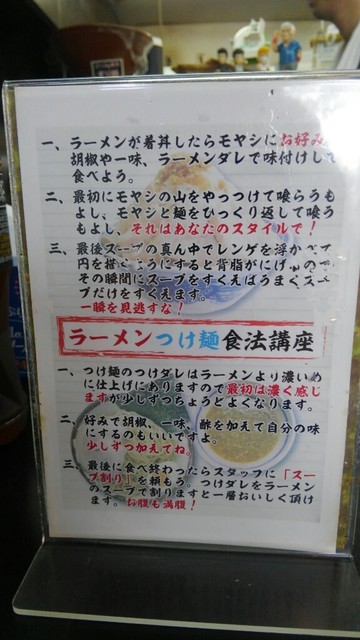 一、ラーメンが着丼したらモヤシにお好み
胡椒や一味、ラーメンダレで味付けして
食べよう。
二、最初にモヤシの山をやっつけて喰らうも
よし、モヤシと麺をひっくり返して喰う
もよし、それはあなたのスタイルで！
三、最後スープの真ん中でレンゲを浮かべて
円を描くようにすると背脂がにげ
その瞬間にスープをすくえばうまくスー
プだけをすくえます。
一瞬を見逃すな！
ラーメンつけ麺食法講座
一、つけ麺のつけダレはラーメンより濃いめ
に仕上げにありますので最初は濃く感じ
ますが少しずつちょうどよくなります。
二、好みで胡椒、一味、酢を加えて自分の味
にするのもいいですよ。
少しずつ加えてね。
三、最後に食べ終わったらスタッフに「スー
プ割り」を頼もう。つけダレをラーメン
のスープで割りますと一層おいしく頂け
ます。お腹も満腹！